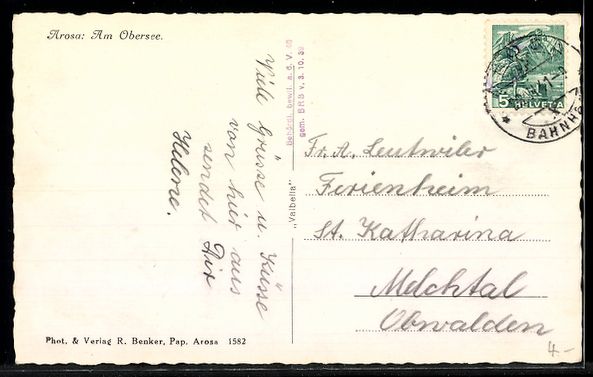 Arosa: Am Obersee.
Viele Grüsse u. Küsse
von hier aus
sendet Dir
Helene.
Behördl. bewill. a. d. V.
gem. BRB v. 3. 10. 39
"Valbella"
5 HELVETIA
BAHNH
Fr. A. Leutwiler
Ferienheim
St. Katharina
Melchtal
Obwalden
4.-
Phot. & Verlag R. Benker, Pap. Arosa 1582